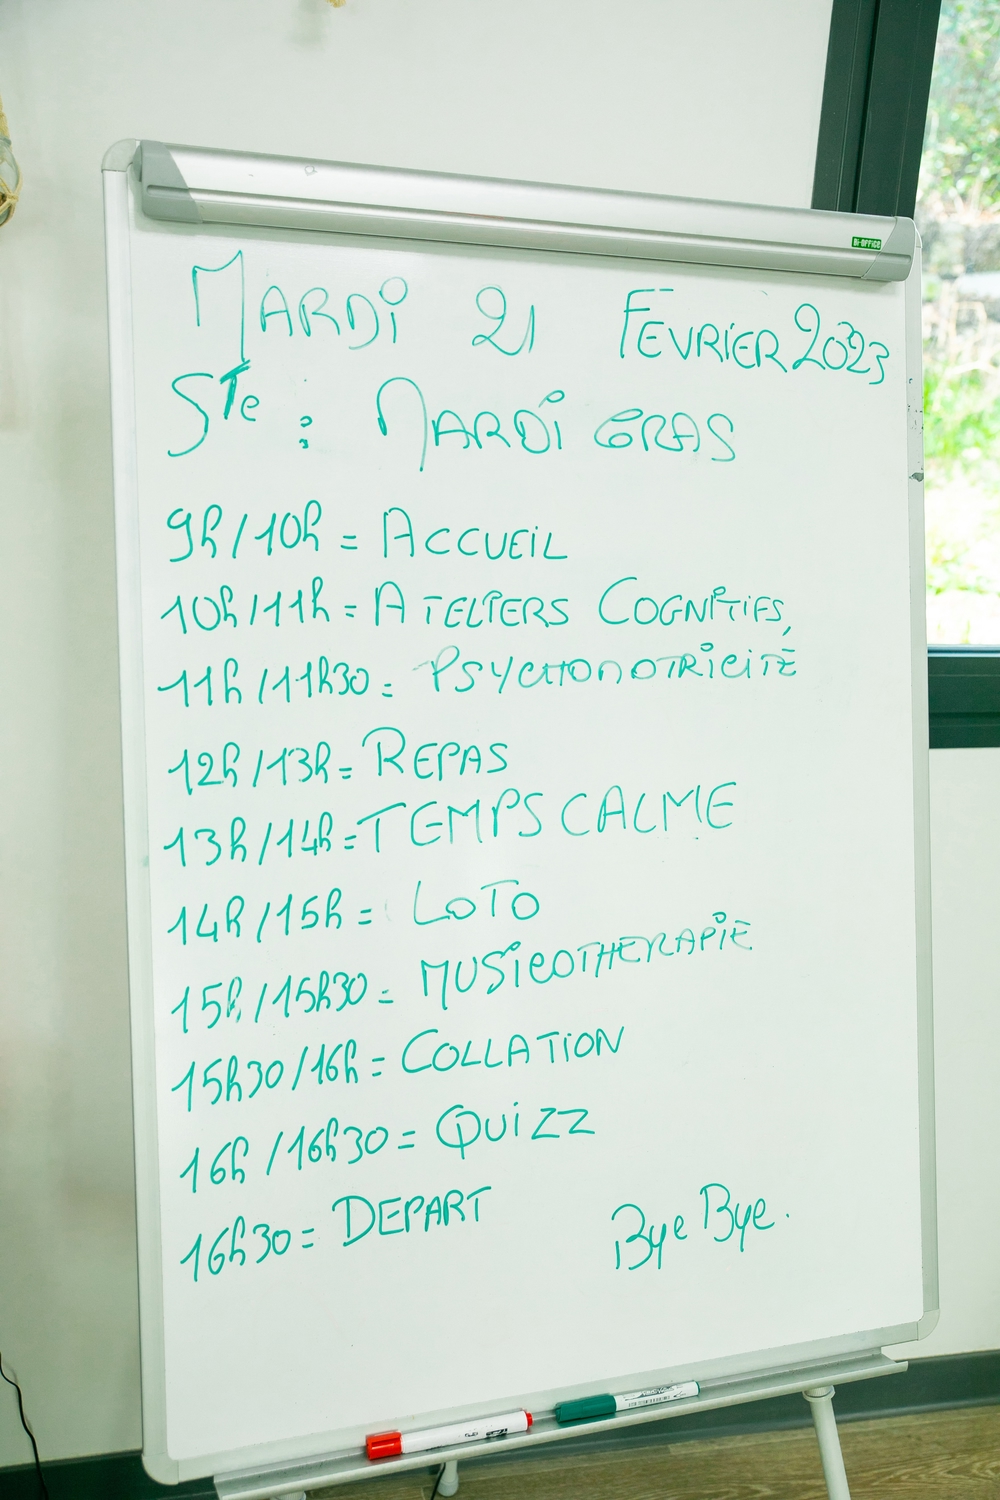 Bi-Office
MARDI 21 FEVRIER 2023
Ste : MARDI GRAS
9h/10h = ACCUEIL
10h/11h = ATELIERS COGNITIFS,
11h/11h30 = PSYCHOMOTRICITÉ
12h/13h = REPAS
13h/14h = TEMPS CALME
14h/15h = LOTO
15h/15h30 = MUSICOTHERAPIE
15h30/16h = COLLATION
16h/16h30 = QUIZZ
16h30 = DEPART
Bye Bye.